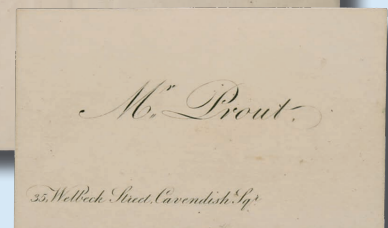 Mr. Prout.
35, Welbeck Street, Cavendish Sqr.